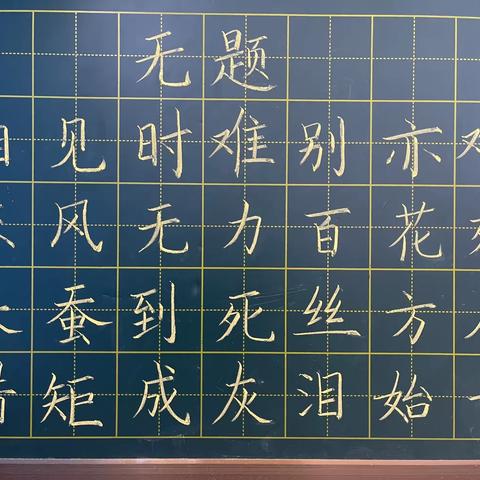 无题
见时难别亦
风无力百花
蚕到死丝方
矩成灰泪始